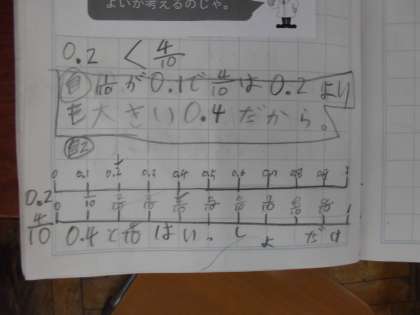 よいか考えるのじゃ。
0.2 < 4/10
自 1/10が0.1で4/10は0.2より
も大きい0.4だから。
自2
0 0.1 0.2 0.3 0.4 0.5 0.6 0.7 0.8 0.9 1
0.2
0 1/10 2/10 3/10 4/10 5/10 6/10 7/10 8/10 9/10 1
4/10
0.4と4/10はい。しょだけ